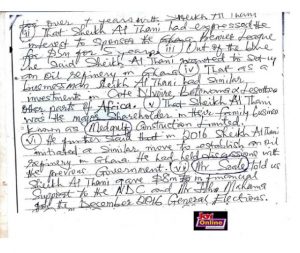 for over 7 years with Sheikh Al Thani
ii) That Sheikh Al Thani had expressed the
interest to Sponsor the Ghana Premier League
for $5m for years. iii) Out of the blue
the said Sheikh Al Thani wanted to set up
an oil refinery in Ghana iv) That as a
businessman Sheikh Al Thani had Similar
investments in Cote D'Ivoire
other parts of Africa. v) That Sheikh Al Thani
was the major Shareholder in their family business
known as Medgulf Construction Limited.
vi) He further said that in 2016 Sheikh Al Thani
initiated a Similar move to establish an oil
refinery in Ghana. He had held discussions with
the previous Government. vii) Mr told us
Sheikh Al Thani gave $8m in financial
Support to the NDC and Mr John Mahama
for the December 2016 General Elections.
Online